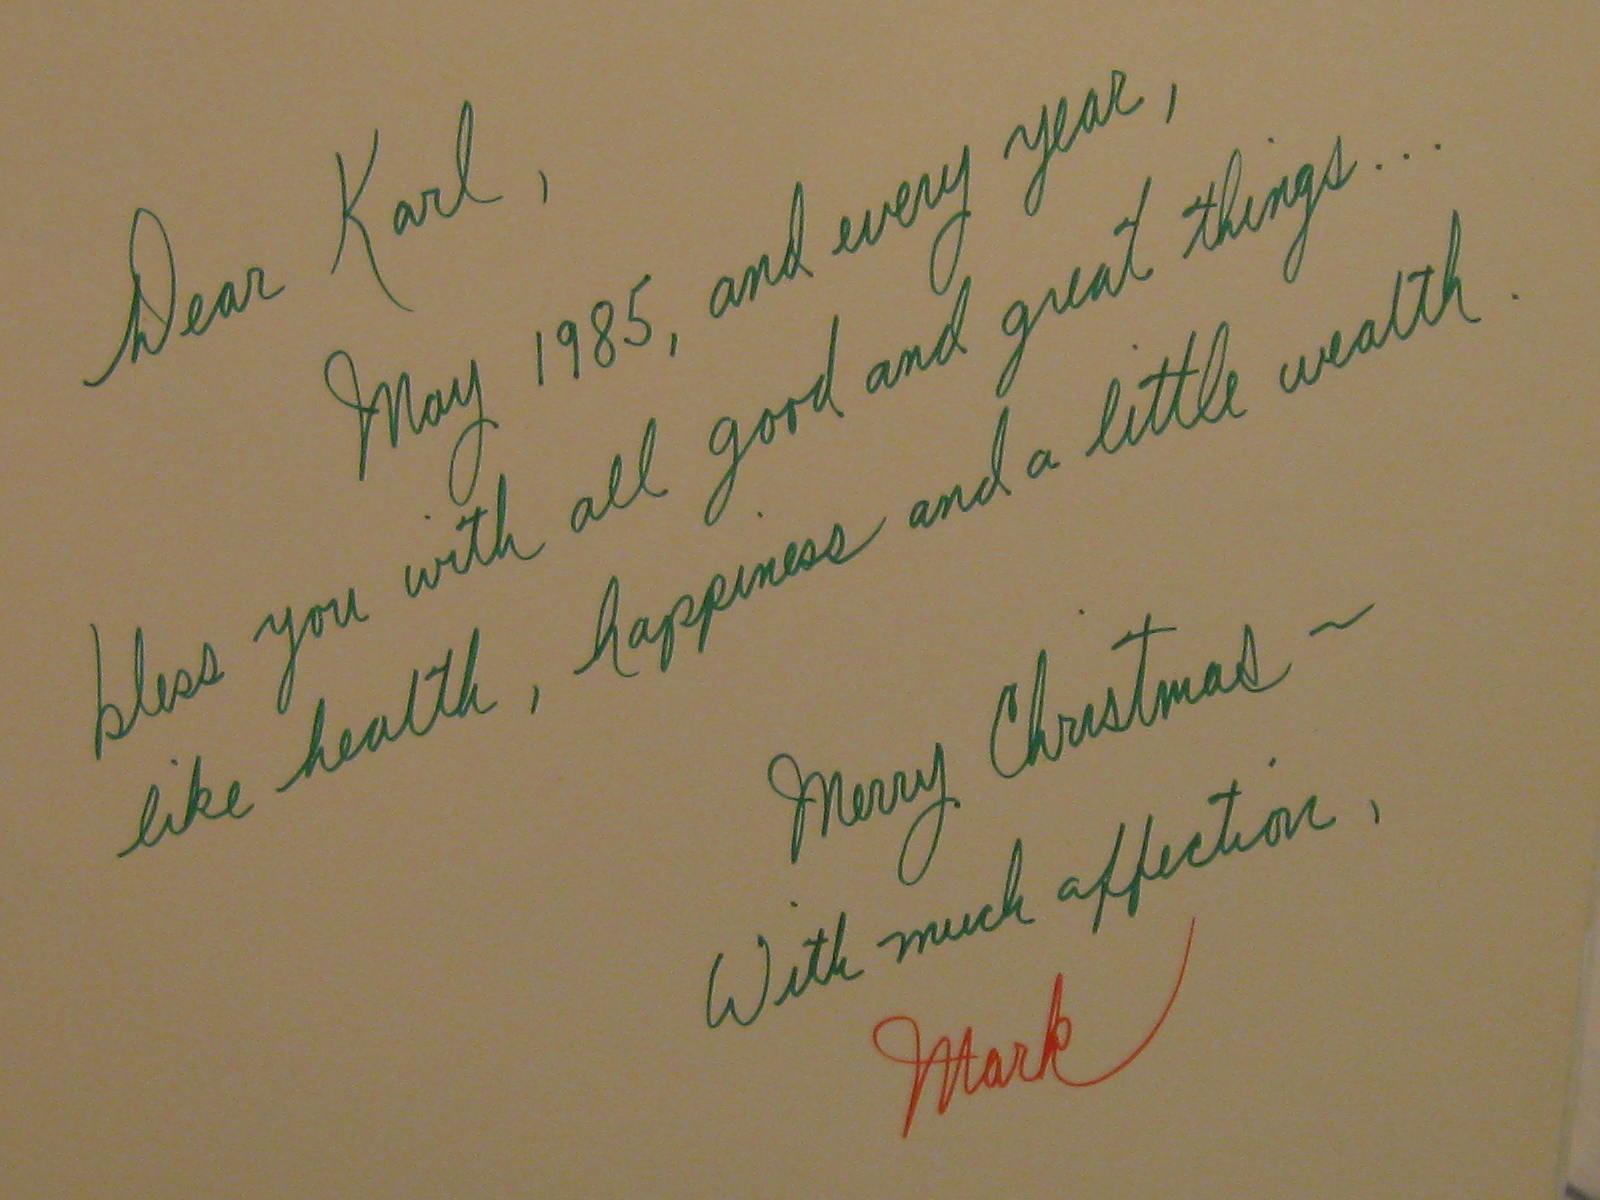 Dear Karl,
May 1985, and every year,
bless you with all good and great things...
like health, happiness and a little wealth.
Merry Christmas ~
With much affection,
Mark